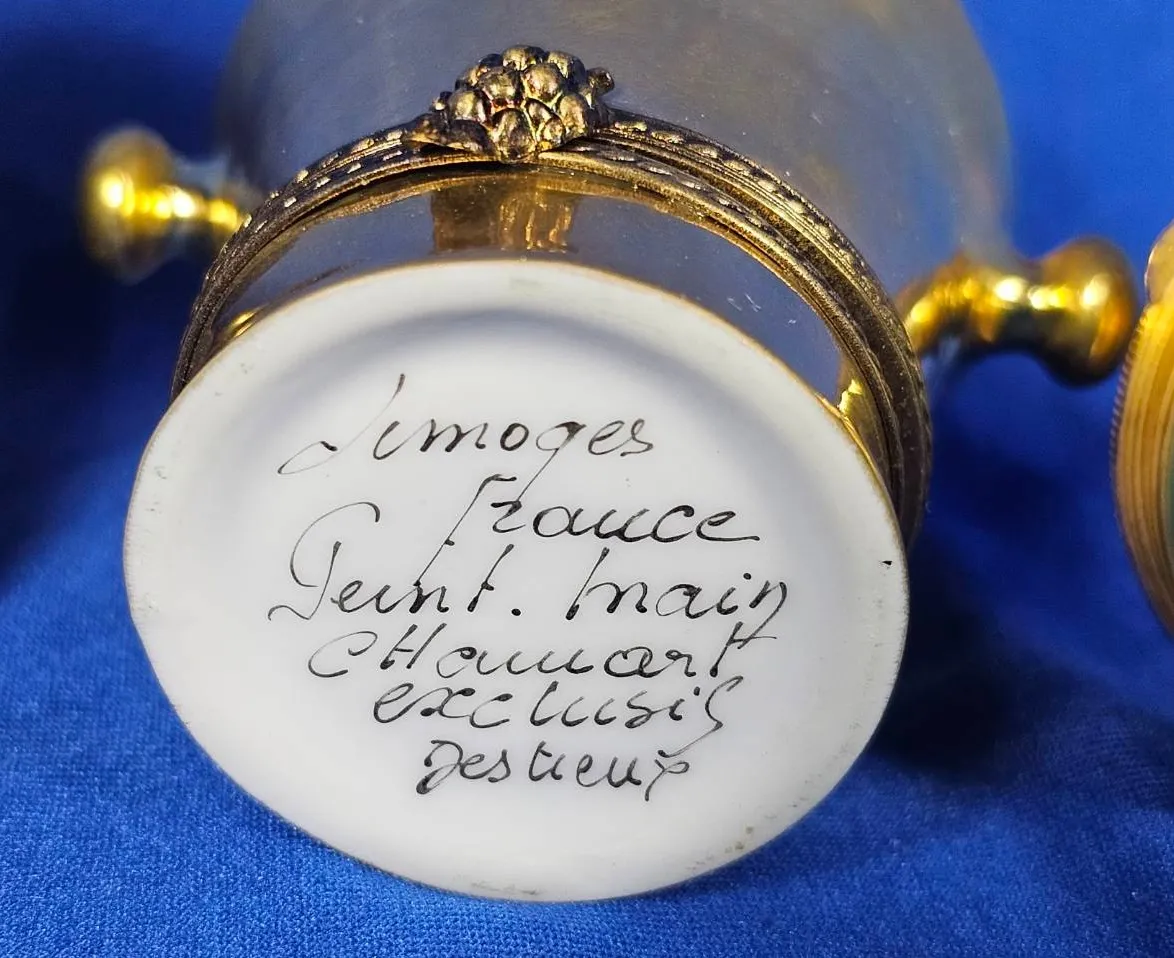 Limoges
France
Peint. main
CHamart
exclusif